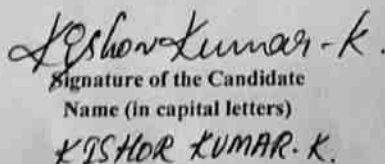 Kishor Kumar-K.
Signature of the Candidate
Name (in capital letters)
KISHOR KUMAR. K.